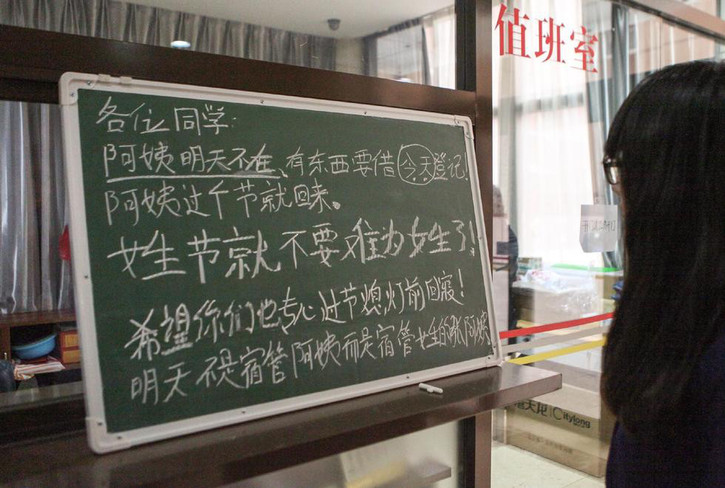 值班室
各位同学:
阿姨明天不在、有东西要借今天登记!
阿姨过个节就回来。
女生节就不要难为女生了!
希望你们也专心过节熄灯前回寝!
明天不是宿管阿姨而是宿管女生的张阿姨
Citylong